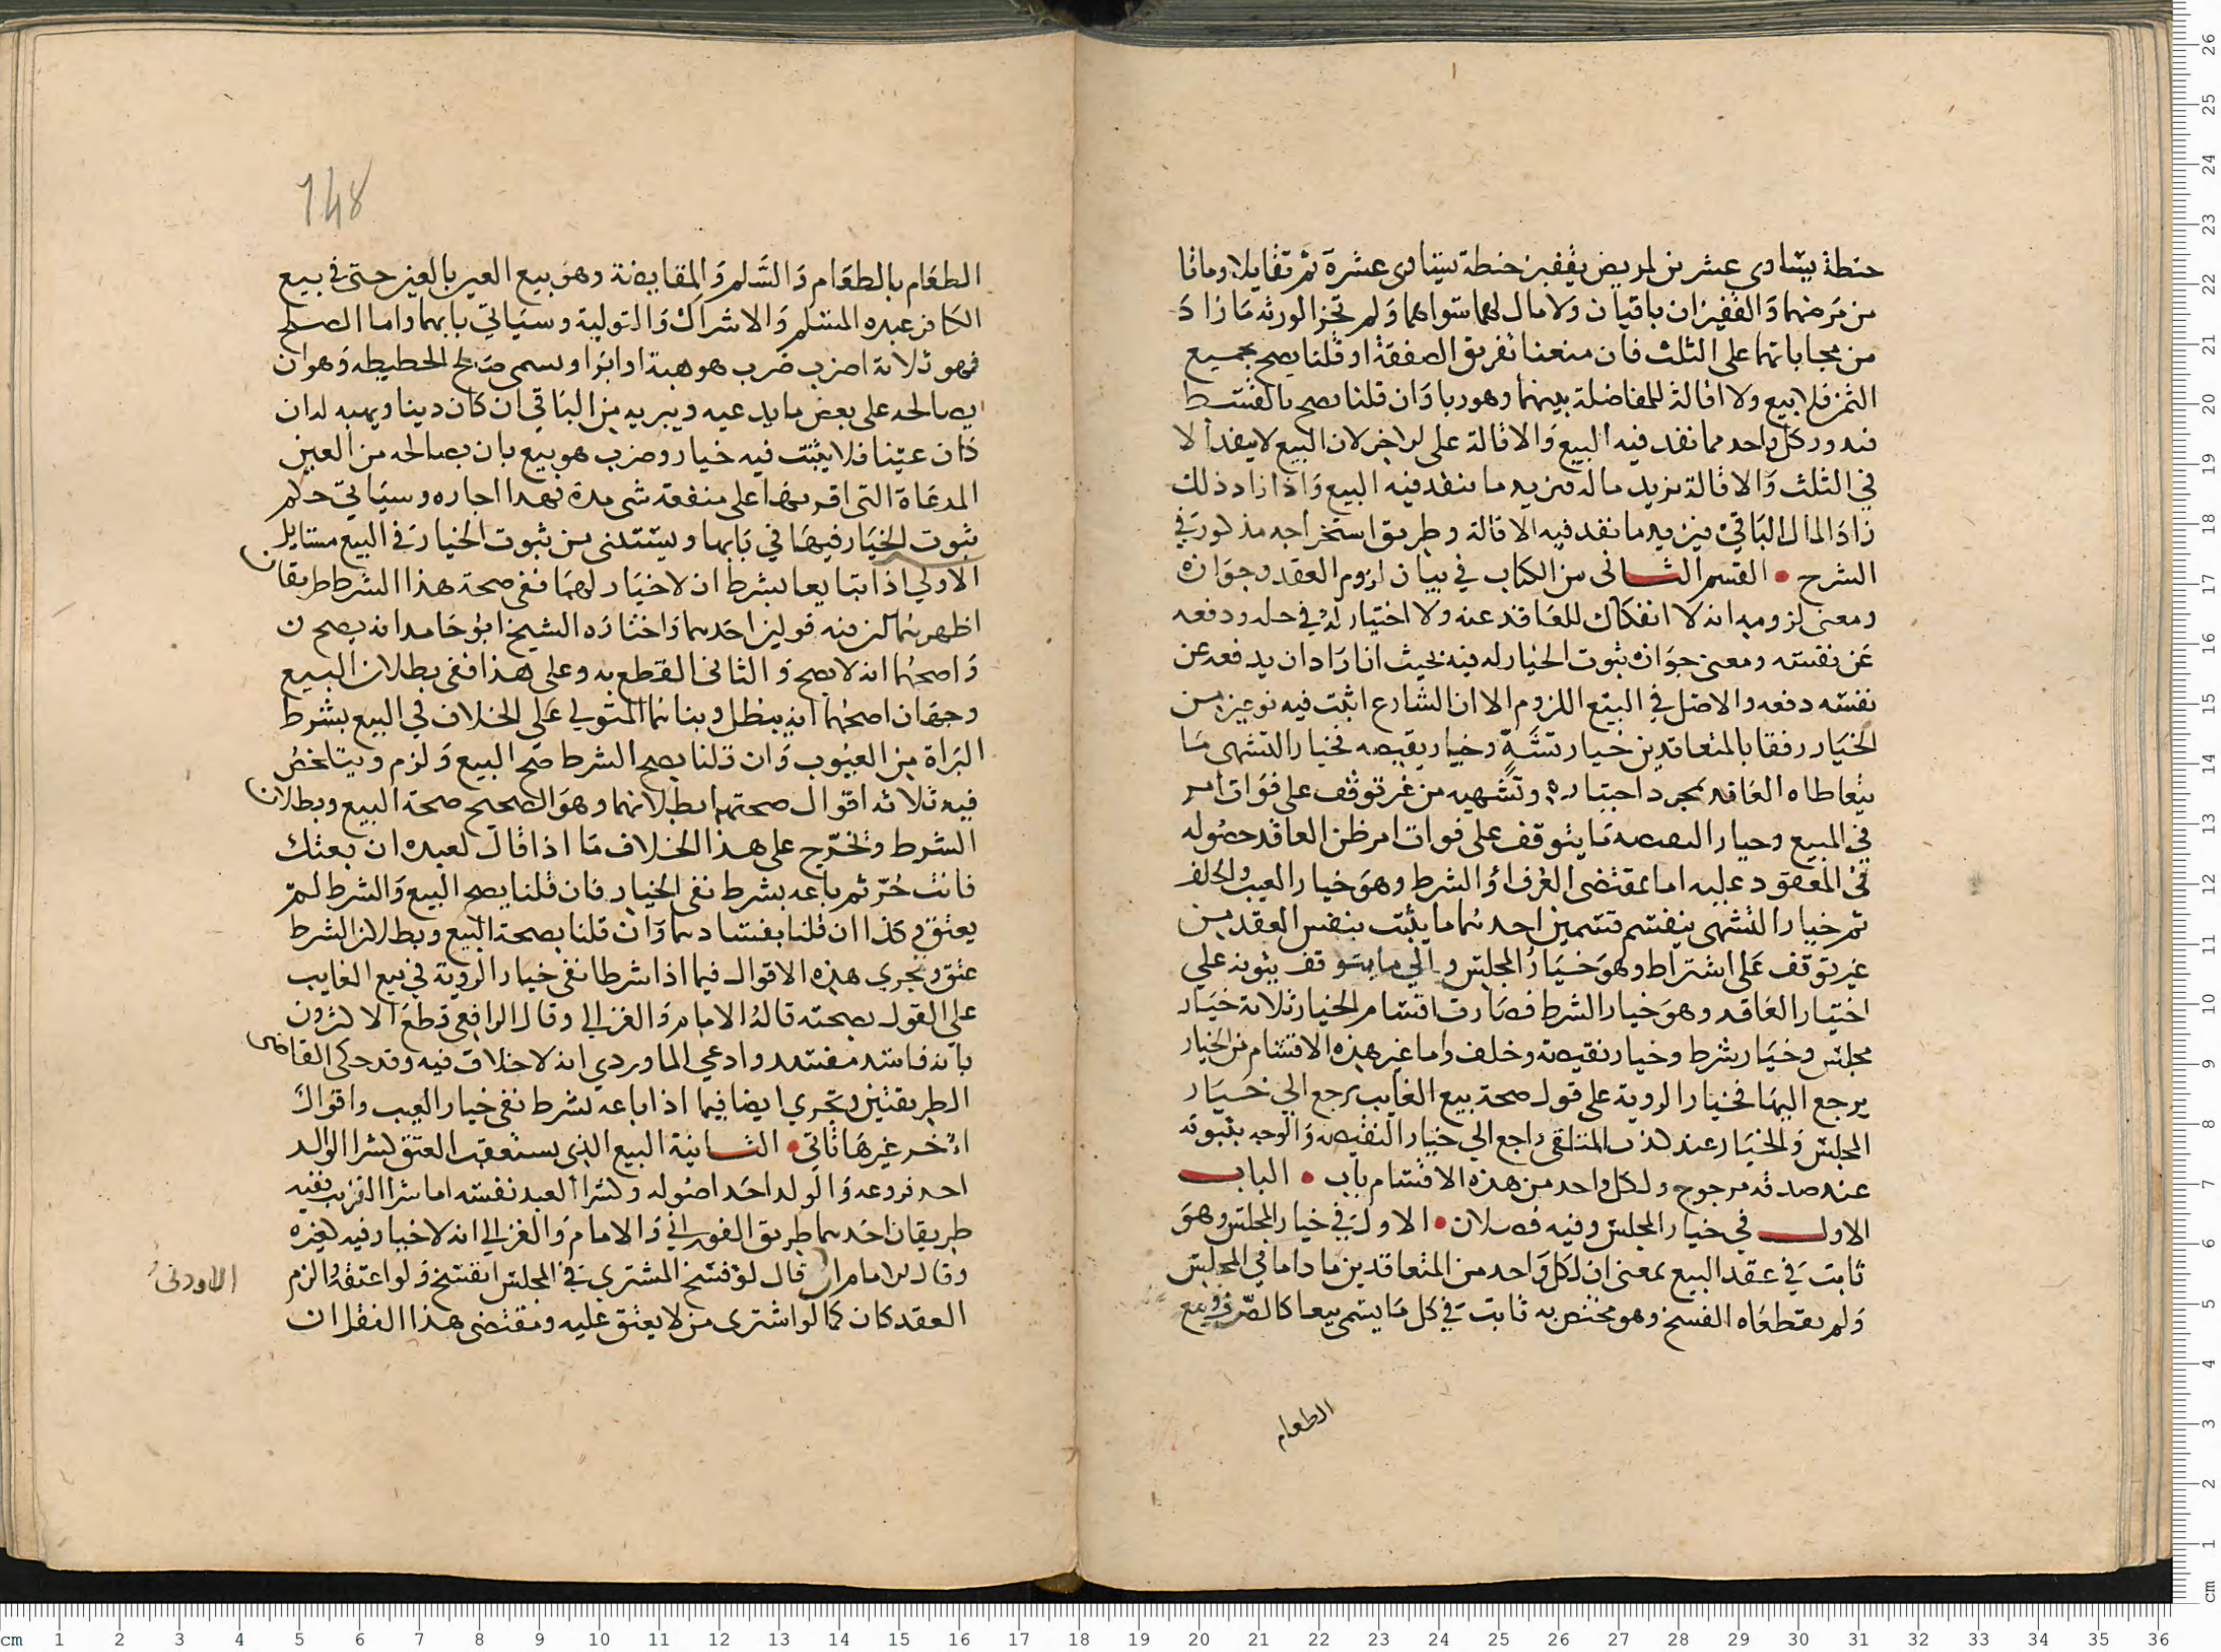 حنطة يساوي عشرين لمريض بقفيز حنطة يساوي عشرة ثم تقايلا وماتا
من مرضهما والقفيزان باقيان ولا مال لهما سواهما ولم تجز الورثة ما زاد
من محاباتهما على الثلث فان منعنا تفريق الصفقة او قلنا يصح بجميع
الثمن فلا بيع ولا اقالة للمفاضلة بينهما وهو ربا وان قلنا يصح بالقسط
فيدور كل واحد مما نفد فيه البيع والاقالة على الاخر لان البيع لا ينفد الا
في الثلث والاقالة تزيد ماله فيزيد ما ينفد فيه البيع واذا زاد ذلك
زاد المال الباقي فيزيد ما نفد فيه الاقالة وطريق استخراجه مذكور في
الشرح • القسم الثاني من الكتاب في بيان لزوم العقد وجوازه
ومعنى لزومه انه لا انفكاك للعاقد عنه ولا اختيار له في حله ودفعه
عن نفسه ومعنى جوازه ثبوت الخيار له فيه بحيث ان اراد ان يدفعه عن
نفسه دفعه والاصل في البيع اللزوم الا ان الشارع اثبت فيه نوعين من
الخيار رفقا بالمتعاقدين خيار تشه وخيار نقيصه فخيار التشهي ما
يتعاطاه العاقد بمجرد اختياره وتشهيه من غير توقف على فوات امر
في المبيع وخيار النقيصه ما يتوقف على فوات امر ظن العاقد حصوله
في المعقود عليه اما بمقتضى العرف او الشرط وهو خيار العيب والخلف
ثم خيار التشهي ينقسم قسمين احدهما ما يثبت بنفس العقد من
غير توقف على اشتراط وهو خيار المجلس والى ما يتوقف ثبوته على
اختيار العاقد وهو خيار الشرط فصارت اقسام الخيار ثلاثة خيار
مجلس وخيار شرط وخيار نقيصة وخلف واما غير هذه الاقسام من الخيار
يرجع اليها فخيار الروية على قول صحة بيع الغايب يرجع الي خيار
المجلس والخيار عند كذب المتلقي راجع الي خيار النقيصه والوجه بثبوته
عند صدقه مرجوح ولكل واحد من هذه الاقسام باب • الباب
الاول في خيار المجلس وفيه فصلان • الاول في خيار المجلس وهو
ثابت في عقد البيع بمعنى ان لكل واحد من المتعاقدين ما داما في المجلس
ولم يقطعاه الفسخ وهو مختص به ثابت في كل ما يسمى بيعا كالصرف وبيع
الطعام
148
الطعام بالطعام والسلم والمقايضة وهو بيع العين بالعين حتى في بيع
الكافر عبده المسلم والاشراك والتولية وسياتي بابهما واما الصلح
فهو ثلاثة اضرب ضرب هو هبة او ابرا ويسمى صلح الحطيطه وهو ان
يصالحه على بعض ما يدعيه ويبريه من الباقي ان كان دينا ويهبه له ان
كان عينا فلا يثبت فيه خيار وضرب هو بيع بان يصالحه من العين
المدعاة التى اقر بها على منفعة شى مدة فهذا اجاره وسياتي حكم
ثبوت الخيار فيها في بابها ويستثنى من ثبوت الخيار في البيع مسايل
الاولي اذا تبايعا بشرط ان لا خيار لهما ففي صحة هذا الشرط طريقان
اظهرهما انه فيه قولين احدهما واختاره الشيخ ابو حامد انه يصح
واصحهما انه لا يصح والثاني القطع به وعلى هذا ففي بطلان البيع
وجهان اصحهما انه يبطل وبناهما المتولي على الخلاف في البيع بشرط
البراة من العيوب وان قلنا يصح الشرط صح البيع ولزم ويتلخص
فيه ثلاثه اقوال صحتهما بطلانهما وهو الصحيح صحة البيع وبطلان
الشرط ويخرج على هذا الخلاف ما اذا قال لعبده ان بعتك
فانت حر ثم باعه بشرط نفي الخيار فان قلنا يصح البيع والشرط لم
يعتق وكذا ان قلنا بفسادهما وان قلنا بصحة البيع وبطلان الشرط
عتق وتجري هذه الاقوال فيما اذا شرطا نفي خيار الروية في بيع الغايب
علي القول بصحته قاله الامام والغزالي وقال الرافعي قطع الاكثرون
بانه فاسد مفسد وادعي الماوردي انه لا خلاف فيه وقد حكى القاضى
الطريقتين وتجري ايضا فيما اذا باعه بشرط نفي خيار العيب واقوال
اخر غيرها تاتي • الثانية البيع الذي يستعقب العتق كشرا الوالد
احد فروعه والولد احد اصوله وكشرا العبد نفسه اما شرا القريب ففيه
طريقان احدهما طريق الفوراني والامام والغزالي انه لا خيار فيه لغيره
وقال الامام قال لو فسخ المشتري في المجلس انفسخ ولو اعتقه والزم
الاودنى
العقد كان كما لو اشترى من لا يعتق عليه ومقتضى هذا النقل ان